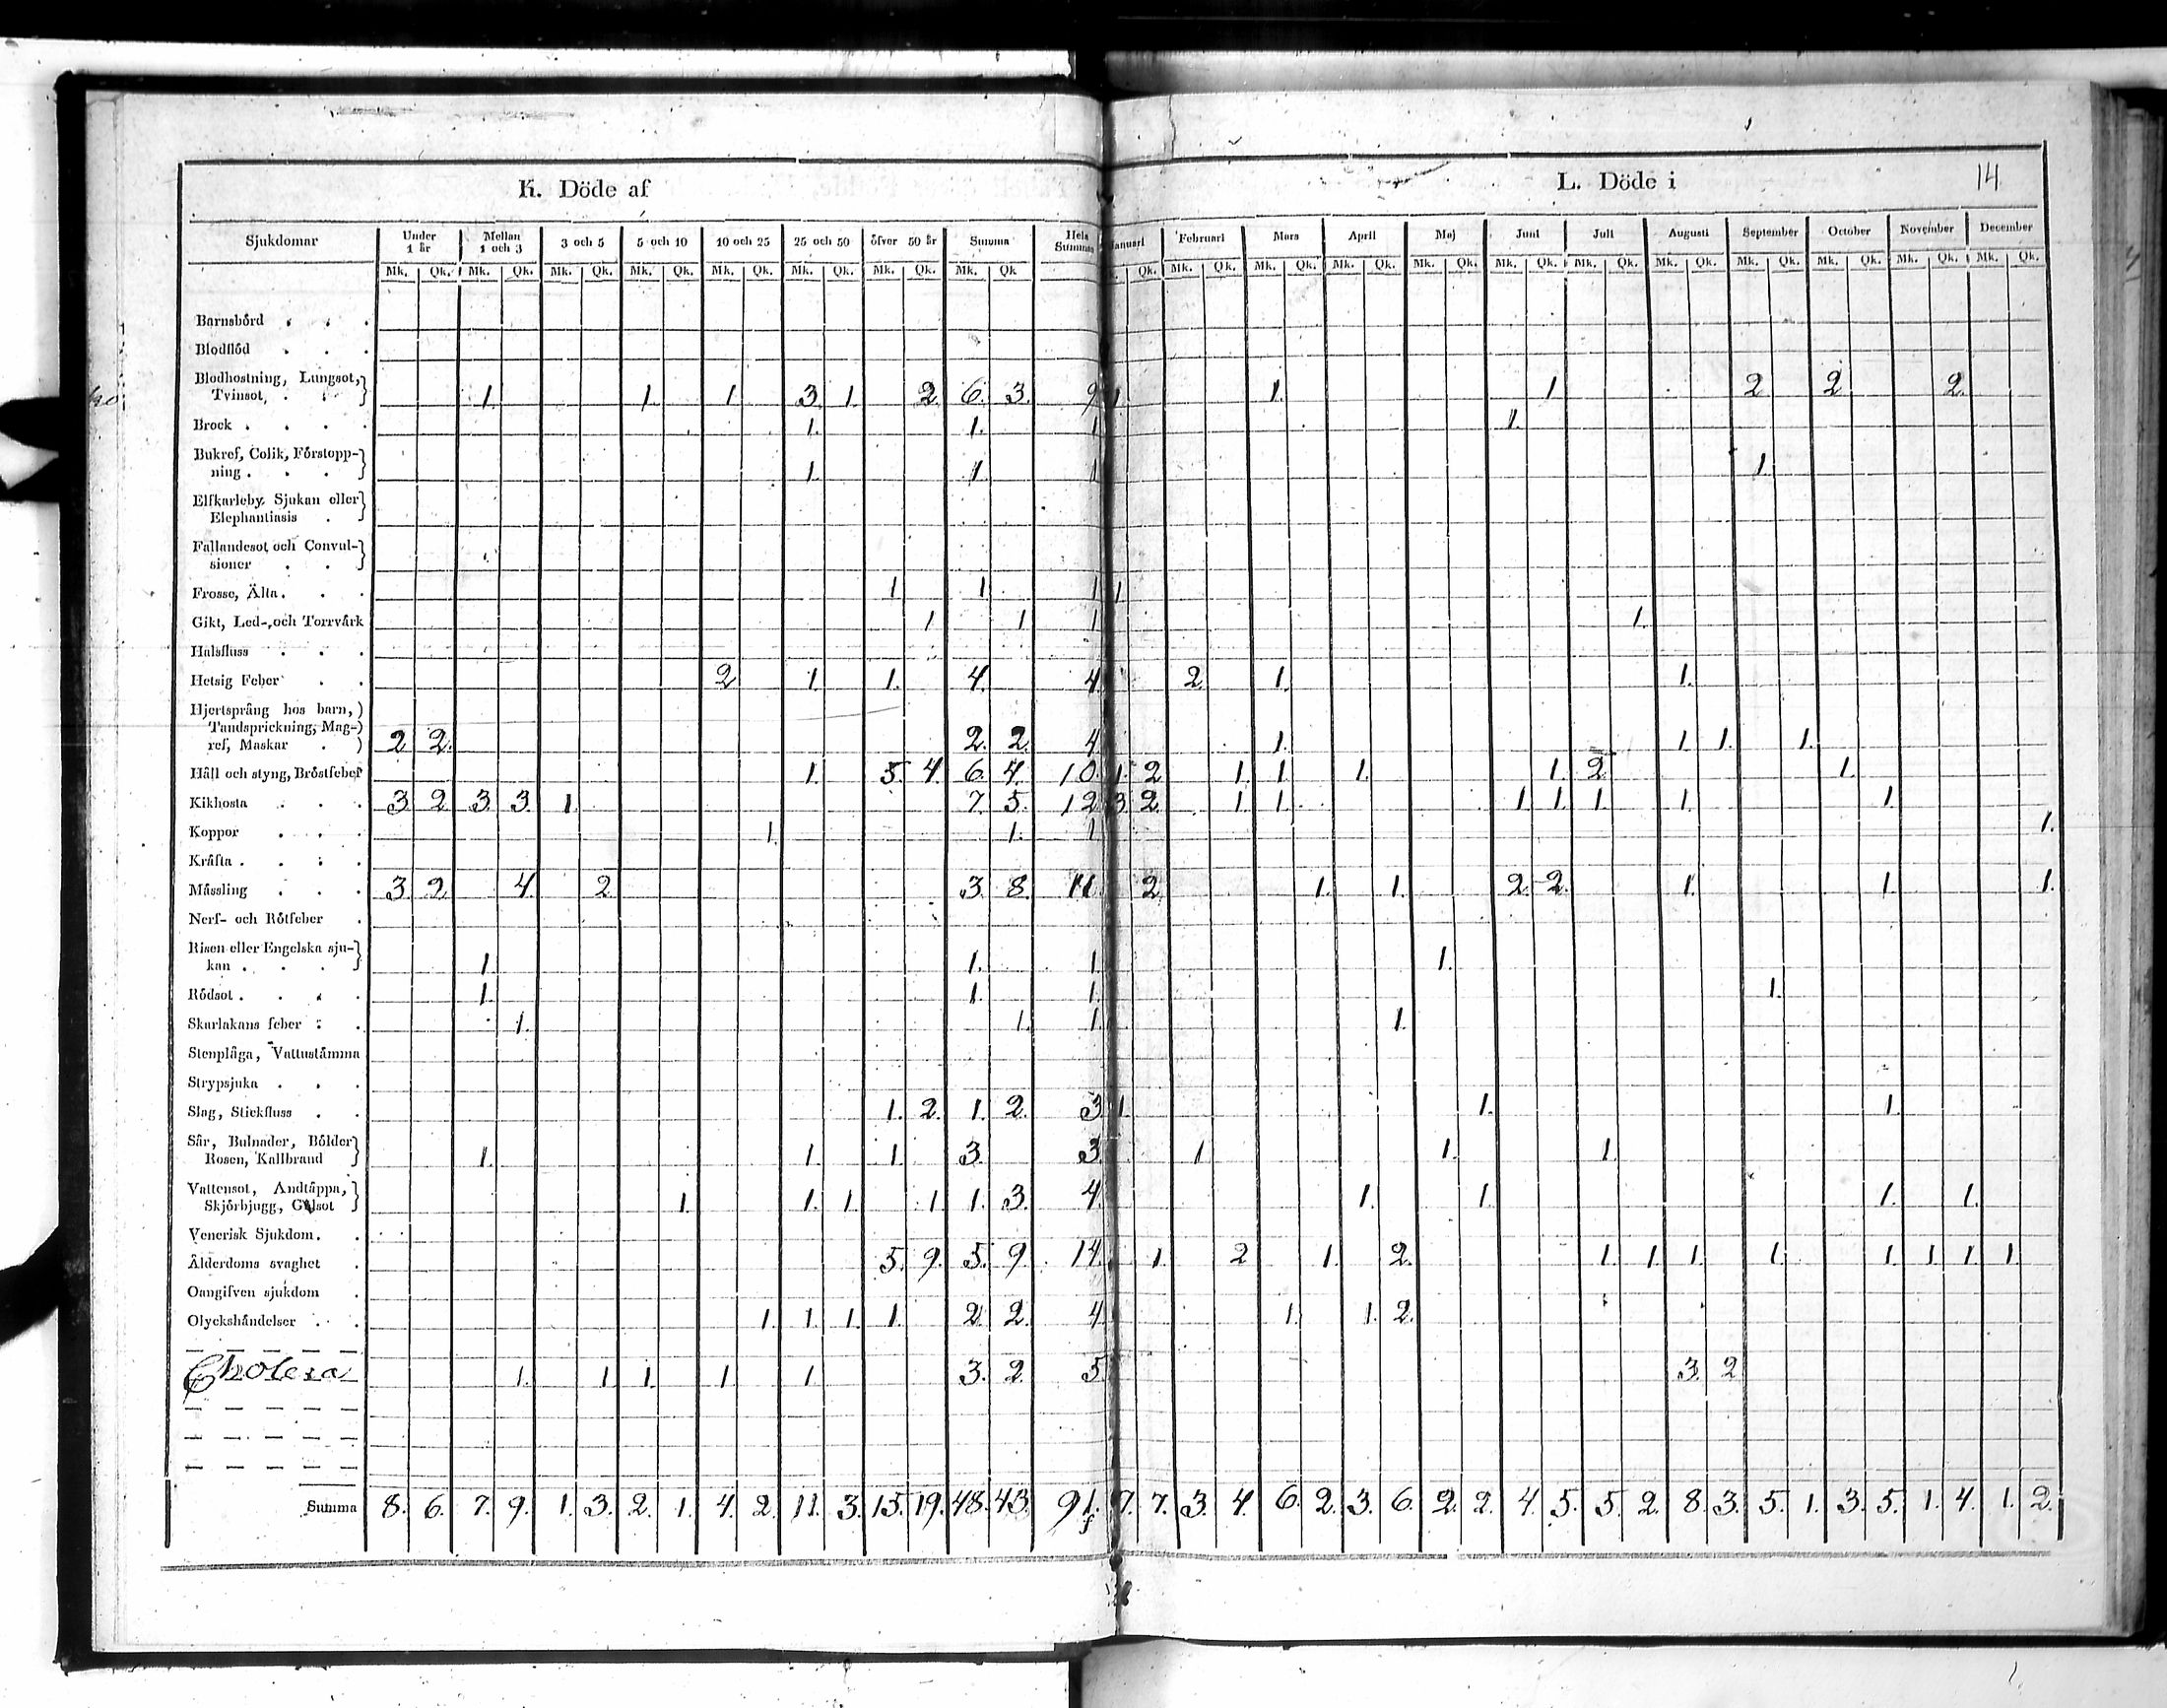 K. Döde af
L. Döde i
14
Sjukdomar Under 1 år Mellan 1 och 3 3 och 5 5 och 10 10 och 25 25 och 50 öfver 50 år Summa Hela Summan Januari Februari Mars April Maj Juni Juli Augusti September October November December
Mk. Qk. Mk. Qk. Mk. Qk. Mk. Qk. Mk. Qk. Mk. Qk. Mk. Qk. Mk. Qk Qk. Mk. Qk. Mk. Qk. Mk. Qk. Mk. Qk. Mk. Qk. Mk. Qk. Mk. Qk. Mk. Qk. Mk. Qk. Mk. Qk. Mk. Qk.
Barnsbörd
Blodflöd
Blodhostning, Lungsot,
Tvinsot, 1. 1. 1. 3. 1. 2. 6. 3. 9 1. 1. 1. 2. 2. 2.
Brock 1. 1. 1 1.
Bukref, Colik, Förstopp-
ning 1. 1. 1 1.
Elfkarleby Sjukan eller
Elephantiasis
Fallandesot och Convul-
sioner
Frosse, Älta 1 1 1 1
Gikt, Led- och Torrvärk 1 1 1 1.
Halsfluss
Hetsig Feber 2 1. 1. 4. 4 2. 1. 1.
Hjertsprång hos barn,
Tandsprickning, Mag-
ref, Maskar 2 2. 2. 2. 4 1. 1. 1. 1.
Håll och styng, Bröstfeber 1. 5. 4. 6. 4. 10. 1. 2 1. 1. 1. 1. 2. 1.
Kikhosta 3. 2. 3. 3. 1. 7. 5. 12 3 2. 1. 1. 1. 1. 1. 1. 1.
Koppor 1. 1. 1 1.
Kräfta
Mässling 3. 2. 4. 2. 3. 8. 11. 2. 1. 1. 2. 2. 1. 1. 1.
Nerf- och Rötfeber
Risen eller Engelska sju-
kan 1. 1. 1. 1.
Rödsot 1. 1. 1. 1.
Skarlakans feber 1. 1. 1. 1.
Stenplåga, Vattustämma
Strypsjuka
Slag, Stickfluss 1. 2. 1. 2. 3 1. 1. 1.
Sår, Bulnader, Bölder
Rosen, Kallbrand 1. 1. 1. 3. 3. 1. 1. 1.
Vattensot, Andtäppa,
Skjörbjugg, Gulsot 1. 1. 1. 1. 1. 3. 4. 1. 1. 1. 1.
Venerisk Sjukdom
Ålderdoms svaghet 5. 9. 5. 9. 14. 1. 2 1. 2. 1. 1. 1. 1. 1. 1. 1. 1.
Oangifven sjukdom
Olyckshändelser 1. 1. 1. 1. 2. 2. 4 1. 1. 2.
Cholera 1. 1. 1. 1. 1. 3. 2. 5. 3. 2
Summa 8. 6. 7. 9. 1. 3. 2. 1. 4. 2. 11. 3. 15. 19. 48. 43. 91. 7. 7. 3. 4. 6. 2. 3. 6. 2. 2. 4. 5. 5. 2. 8. 3. 5. 1. 3. 5. 1. 4. 1. 2.